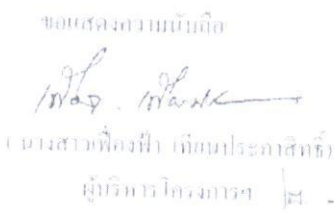 ขอแสดงความนับถือ
( นางสาวเฟื่องฟ้า เทียนประภาสิทธิ์)
ผู้บริหารโครงการฯ